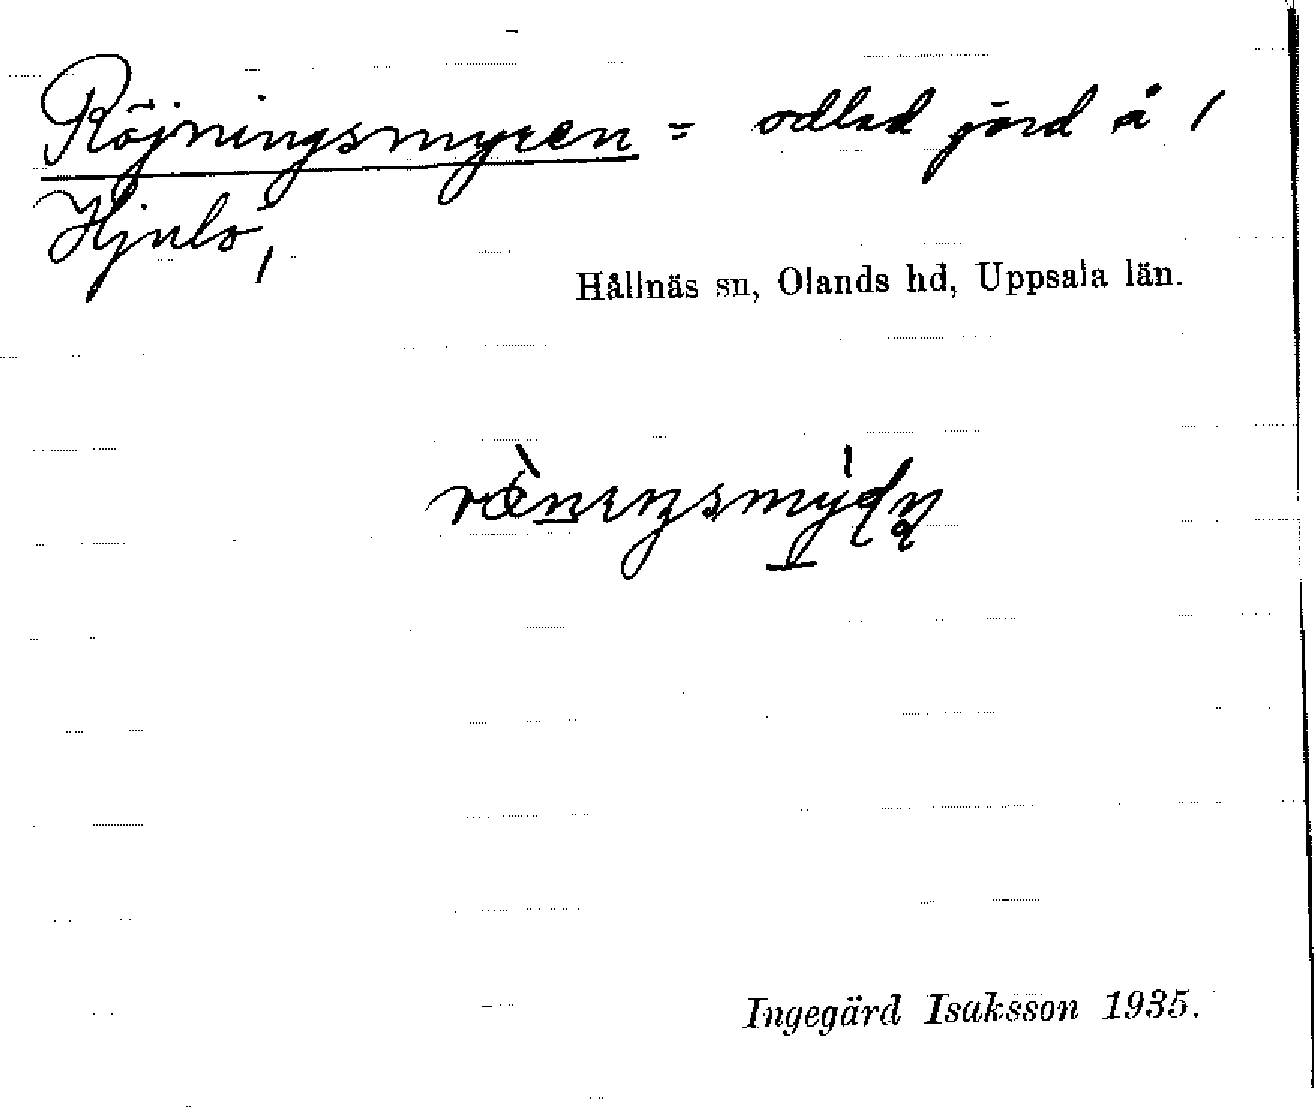 Röjningsmyren = odlad jord å /
Hjulö /
Hållnäs sn, Olands hd, Uppsala län.
Ingegärd Isaksson 1935.